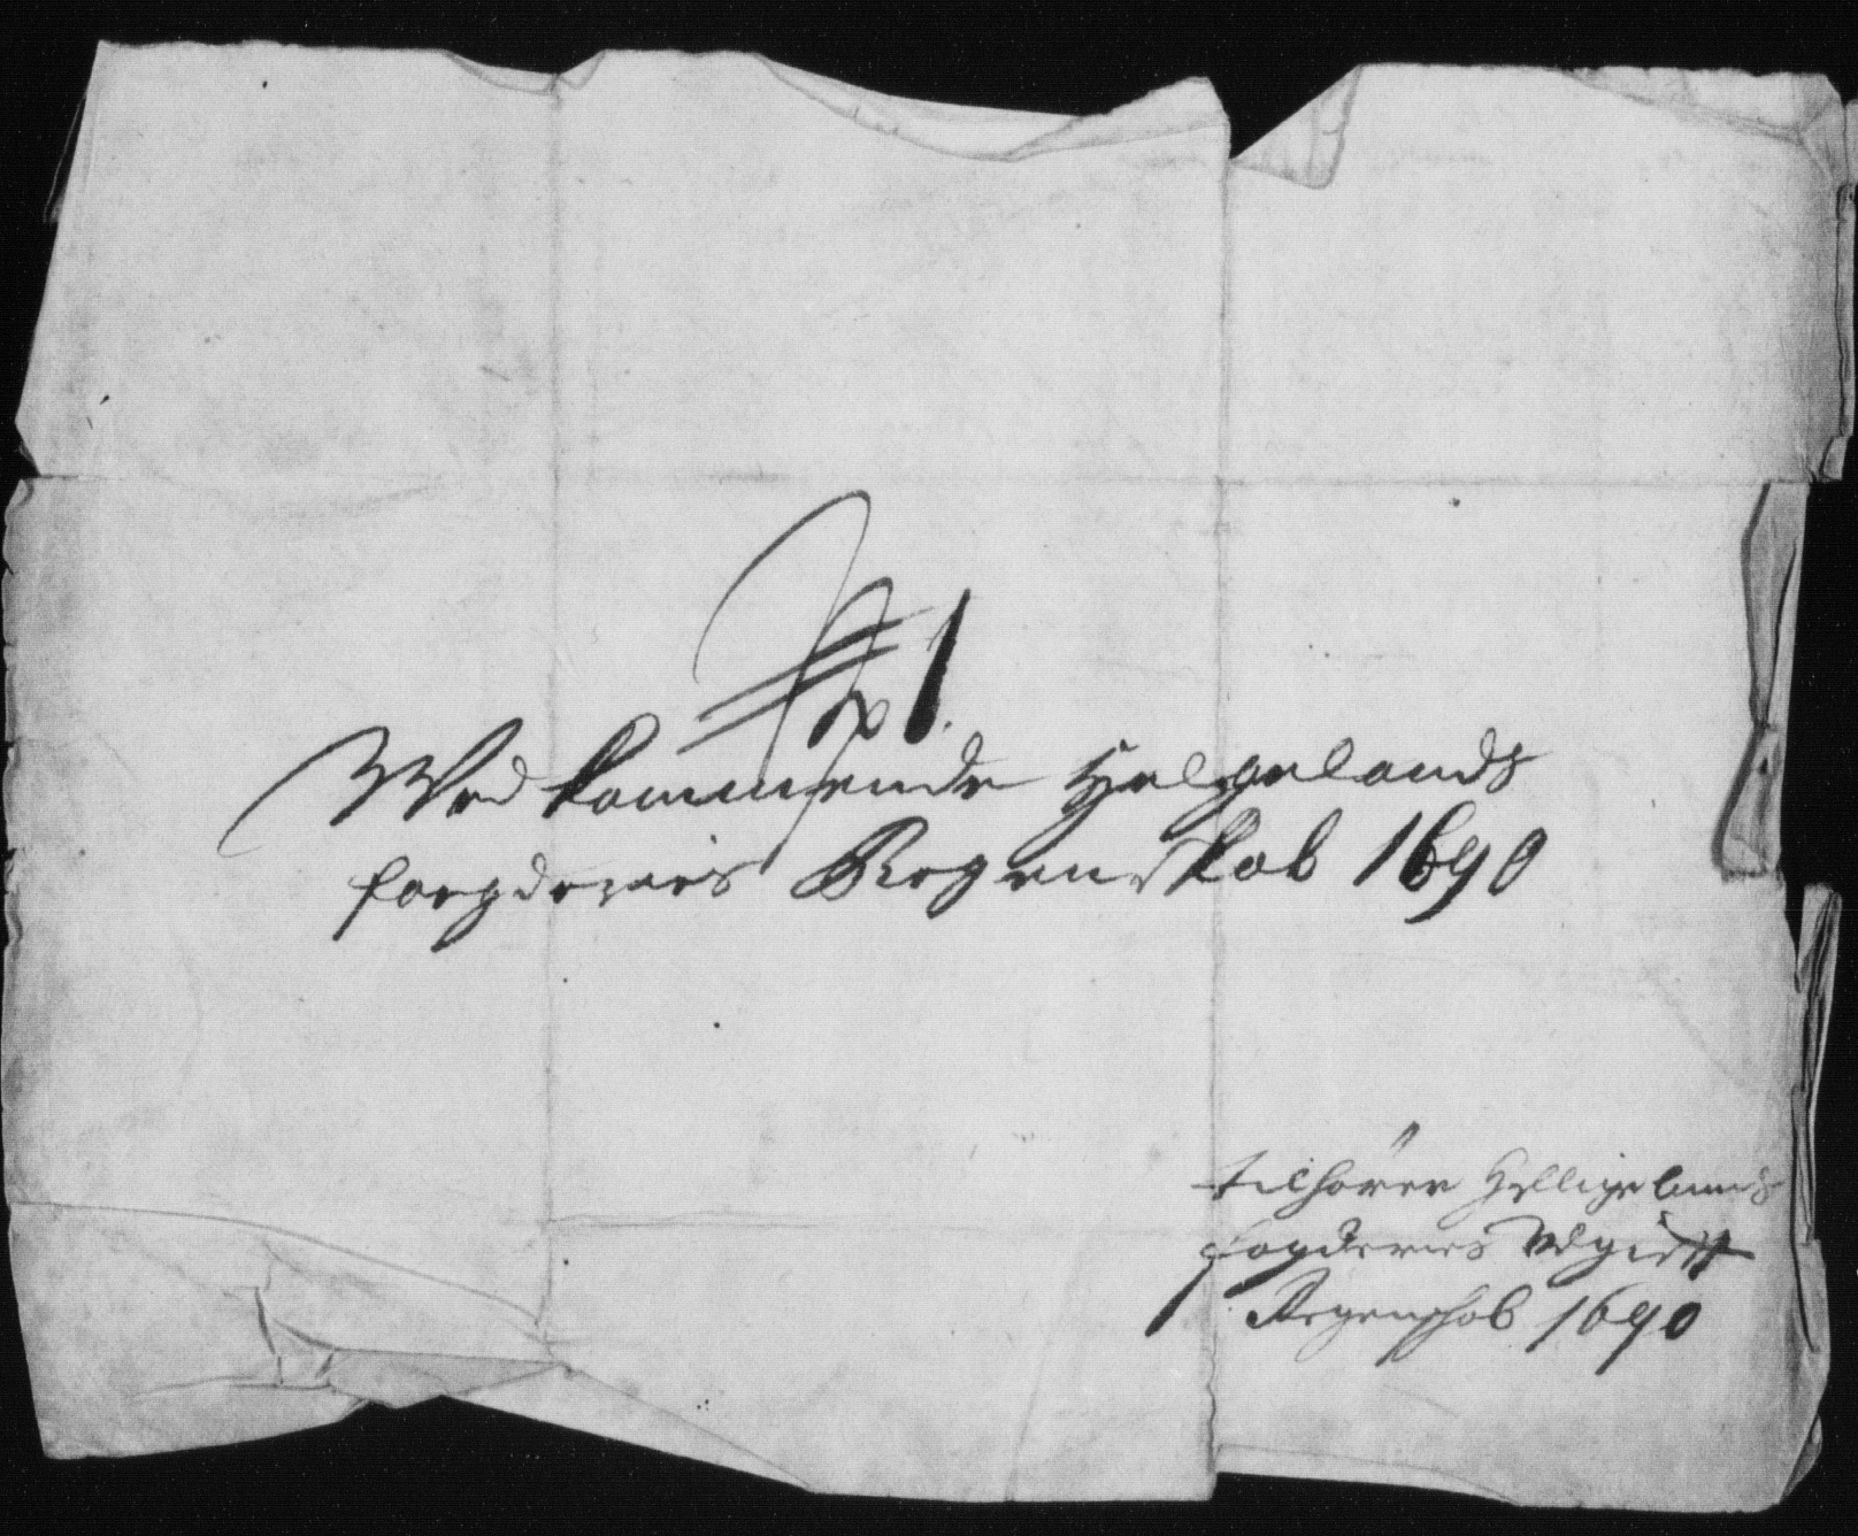 No 1.
Wed kommende Helgelands
fougderies Regenskab 1690
tilhører Helligelands
fogderies Udgifft
Regenskab 1690